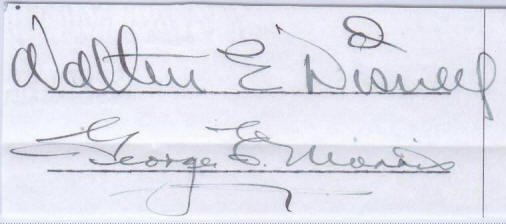 Walter E Disney
George E. Morris